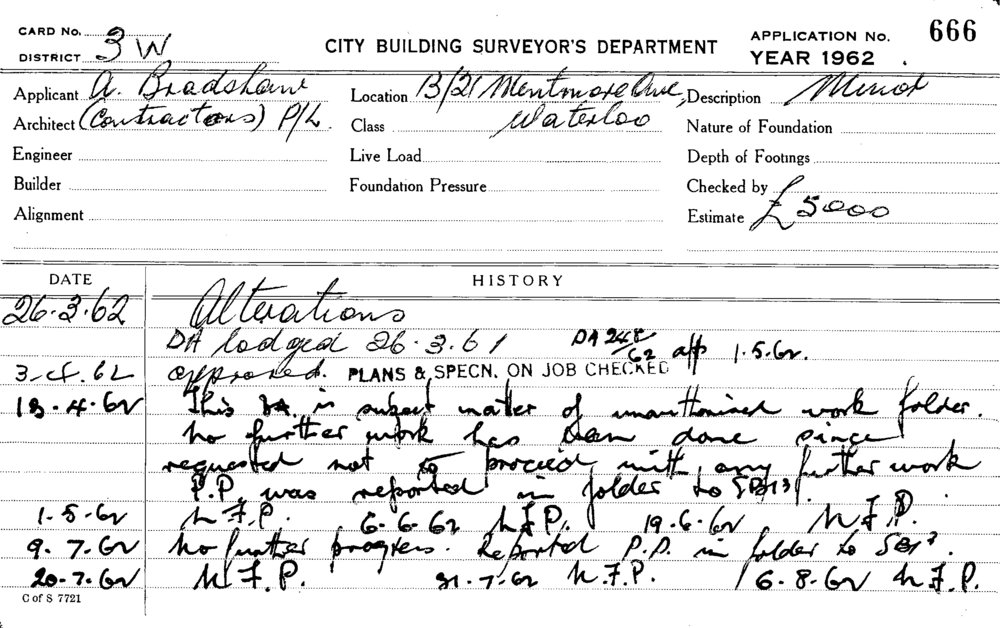 CARD No. 3 W
DISTRICT
CITY BUILDING SURVEYOR'S DEPARTMENT
APPLICATION No. 666
YEAR 1962
Applicant A. Bradshaw
Location 13/21 Mentmore Ave,
Description Minor
Architect (Contractors) P/L.
Class Waterloo
Nature of Foundation
Engineer
Live Load
Depth of Footings
Builder
Foundation Pressure
Checked by
Alignment
Estimate £5000
DATE HISTORY
26.3.62 Alterations
DA lodged 26.3.61 DA 248/62 app 1.5.62.
3.4.62 approved. PLANS & SPECN. ON JOB CHECKED
13.4.62 This BA. is subject matter of unauthorised work folder.
No further work has been done since
requested not to proceed with any further work
P.P. was reported in folder to SBI
1.5.62 N.F.P. 6.6.62 N.F.P. 19.6.62 N.F.P.
9.7.62 No further progress. Reported P.P. in folder to SBI
20.7.62 N.F.P. 31.7.62 N.F.P. 16.8.62 N.F.P.
C of S 7721